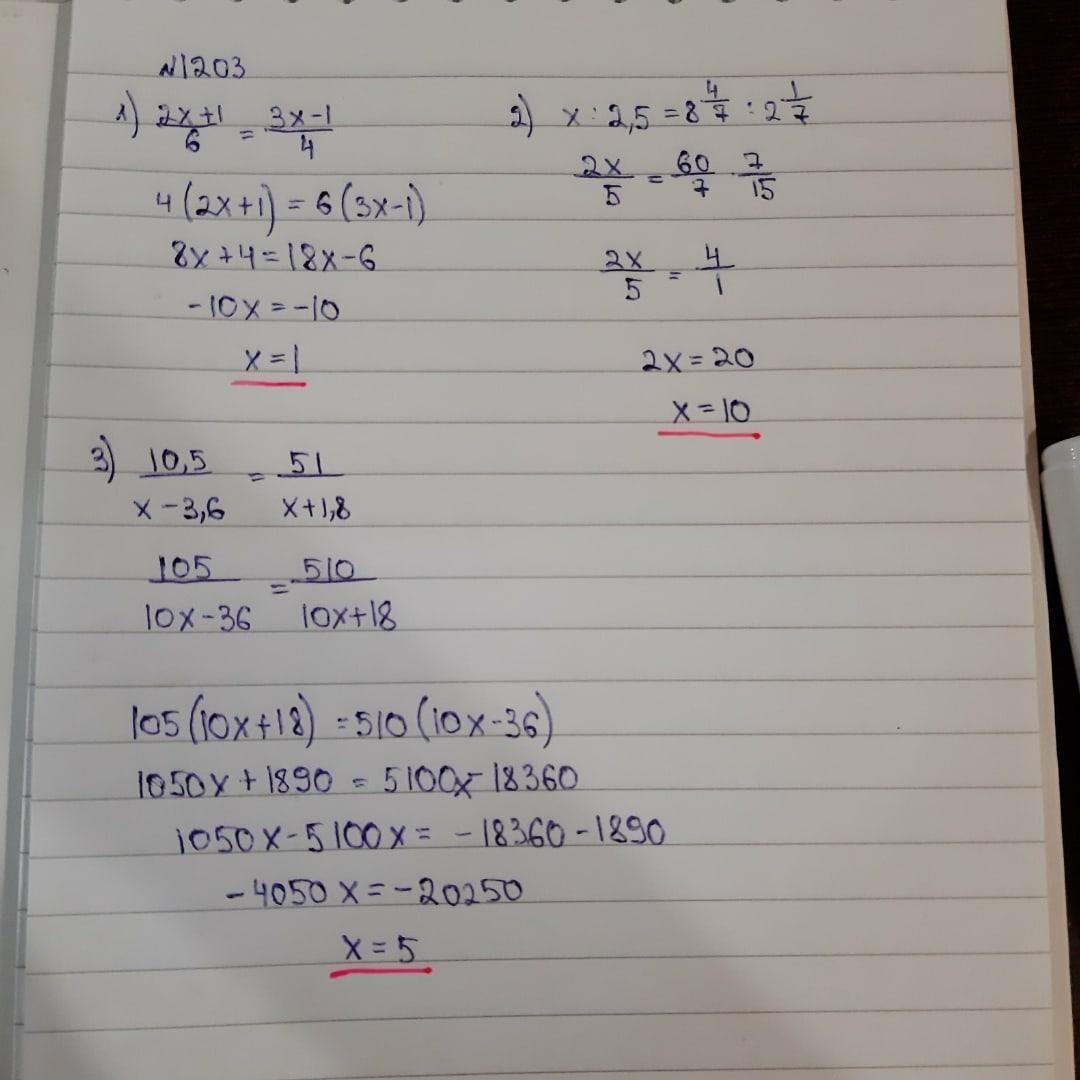 N1203
1) (2x+1)/6 = (3x-1)/4
4(2x+1) = 6(3x-1)
8x+4=18x-6
-10x=-10
x=1
2) x:2,5=8 4/7 : 2 1/7
2x/5 = 60/7 · 7/15
2x/5 = 4/1
2x=20
x=10
3) 10,5/(x-3,6) = 51/(x+1,8)
105/(10x-36) = 510/(10x+18)
105(10x+18) =510(10x-36)
1050x+1890 = 5100x-18360
1050x-5100x= -18360-1890
-4050x=-20250
x=5